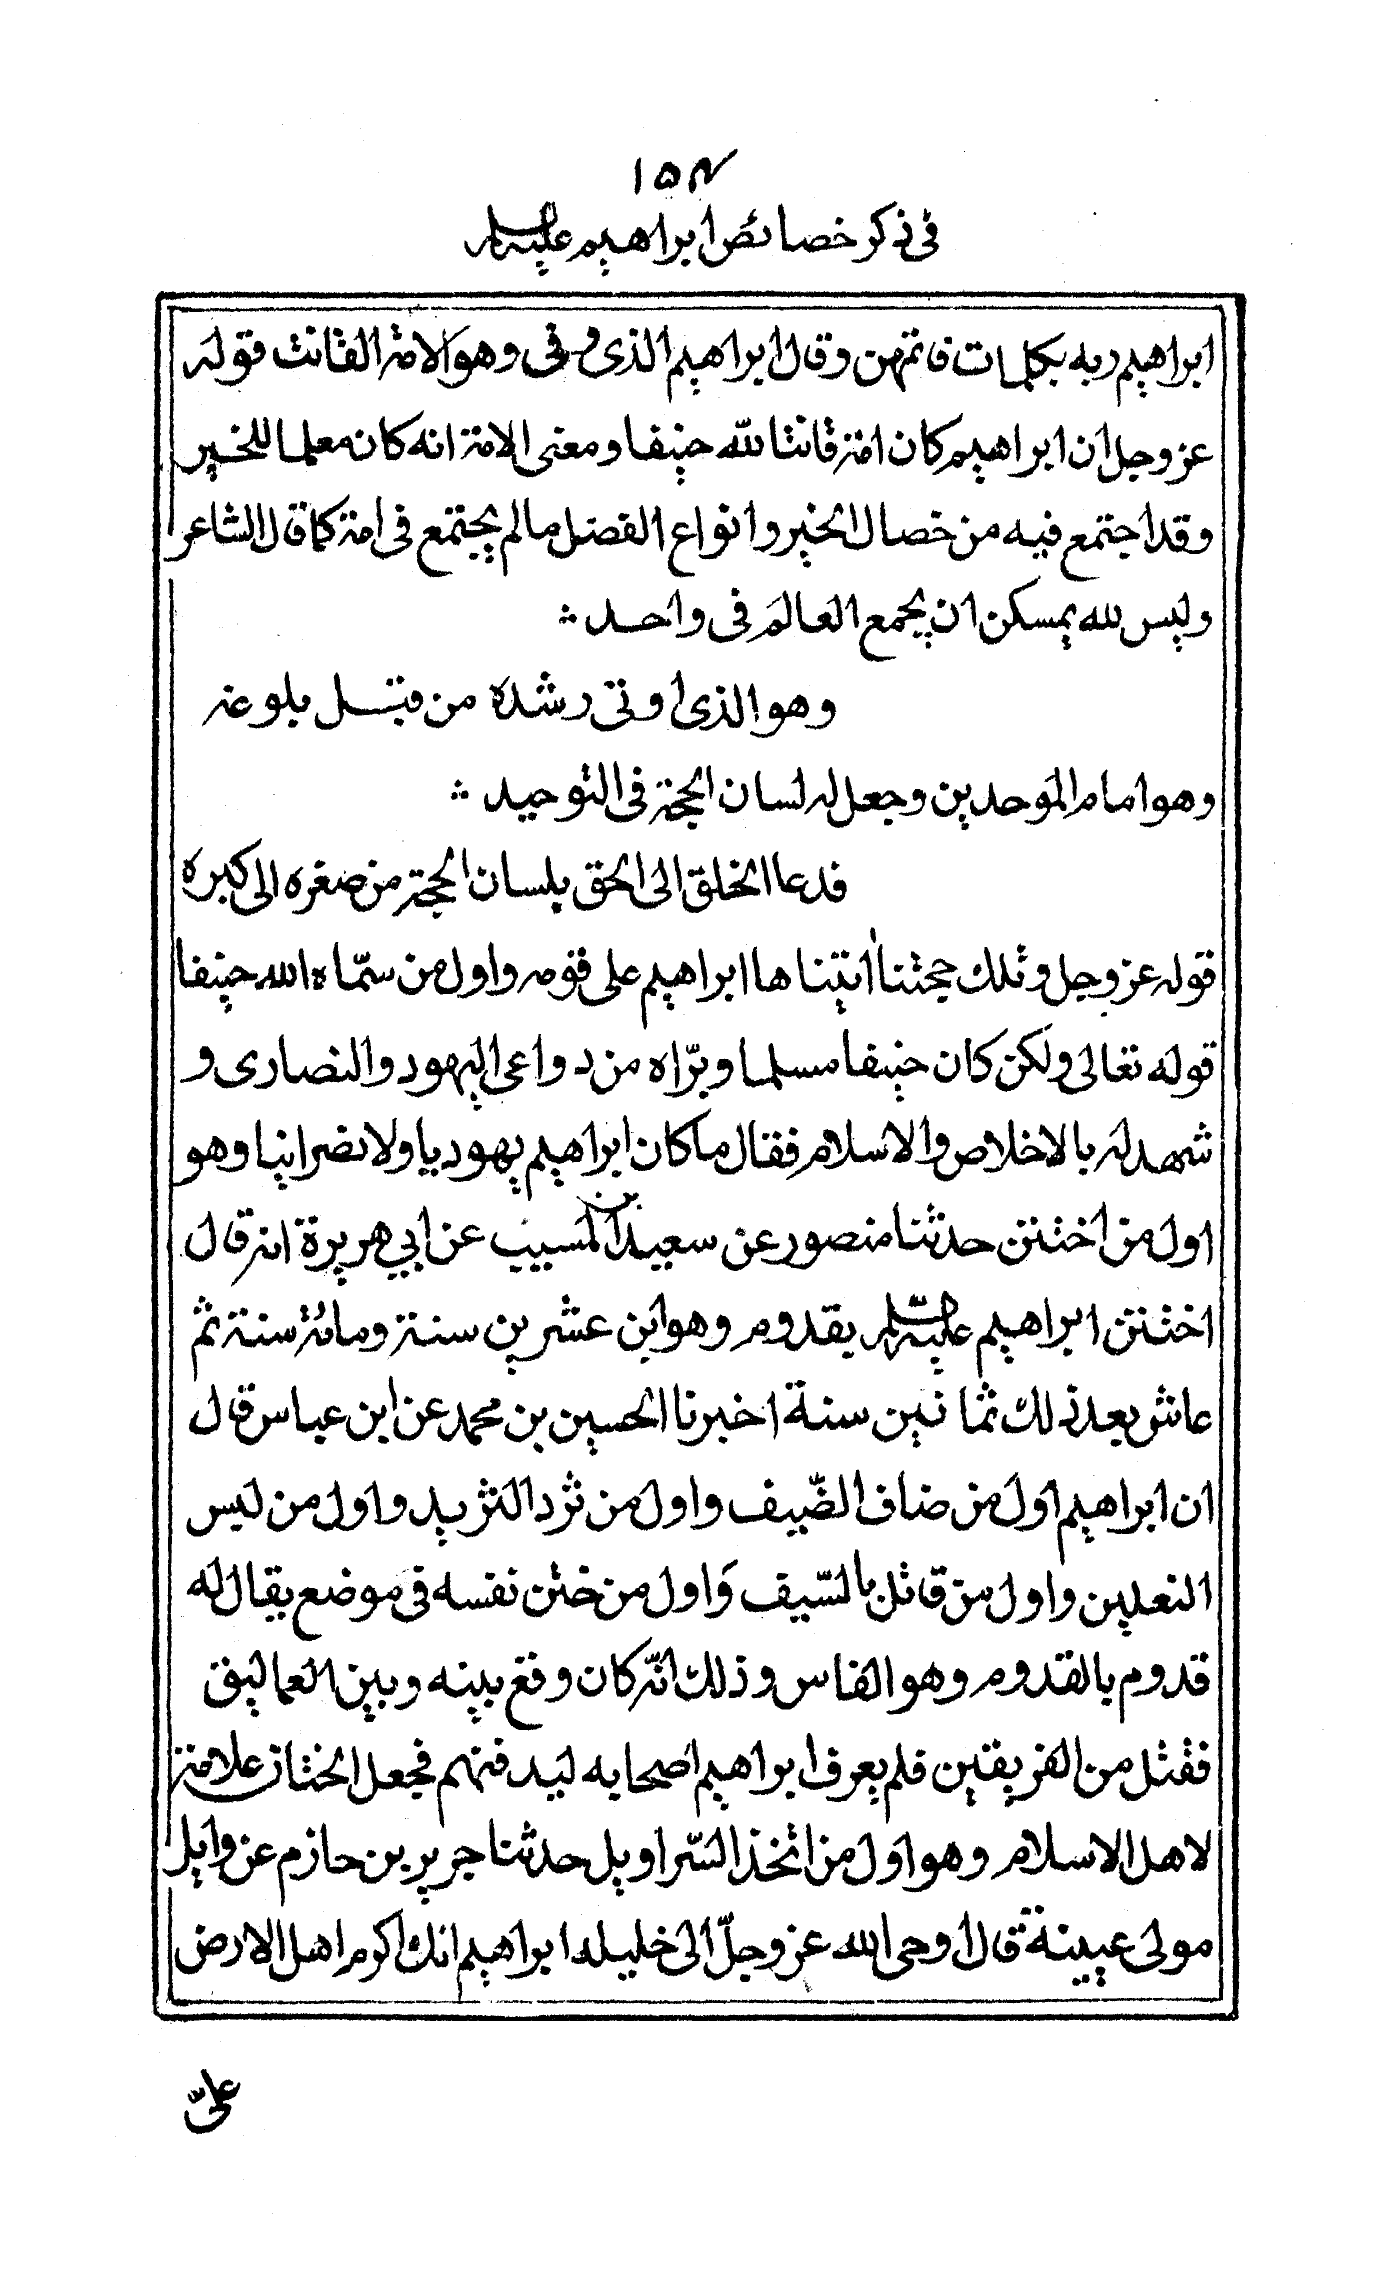 ١٥٤
في ذكر خصائص ابراهيم عليه السلم
ابراهيم ربه بكلمات فاتمهن وقال ابراهيم الذى وفى وهو الامة القانت قوله
عز وجل ان ابراهيم كان امة قانتا لله حنيفا ومعنى الامة انه كان معلما للخير
وقد اجتمع فيه من خصال الخير وانواع الفضل ما لم يجتمع فى امة كما قال الشاعر
وليس لله بمسكن ان يجمع العالم فى واحد
وهو الذى اوتى رشده من قبل بلوغه
وهو امام الموحدين وجعل له لسان الحجة فى التوحيد
فدعا الخلق الى الحق بلسان الحجة من صغره الى كبره
قوله عز وجل وتلك حجتنا اتيناها ابراهيم على قومه واول من سمّاه الله حنيفا
قوله تعالى ولكن كان حنيفا مسلما وبرّاه من دواعى اليهود والنصارى و
شهد له بالاخلاص والاسلام فقال ما كان ابراهيم يهوديا ولا نصرانيا وهو
اول من اختتن حدثنا منصور عن سعيد بن المسيب عن ابي هريرة انه قال
اختتن ابراهيم عليه السلم بقدوم وهو ابن عشرين سنة ومائة سنة ثم
عاش بعد ذلك ثمانين سنة اخبرنا الحسين بن محمد عن ابن عباس قال
ان ابراهيم اول من ضاف الضّيف واول من ثرد الثريد واول من لبس
النعلين واول من قاتل بالسّيف واول من ختن نفسه فى موضع يقال له
قدوم بالقدوم وهو الفاس وذلك انّه كان وقع بينه وبين العماليق
فقتل من الفريقين فلم يعرف ابراهيم اصحابه ليدفنهم فجعل الختان علامة
لاهل الاسلام وهو اول من اتخذ السّراويل حدثنا جرير بن حازم عن وايل
مولى عيينة قال اوحى الله عز وجلّ الى خليله ابراهيم انك اكرم اهل الارض
علىّ